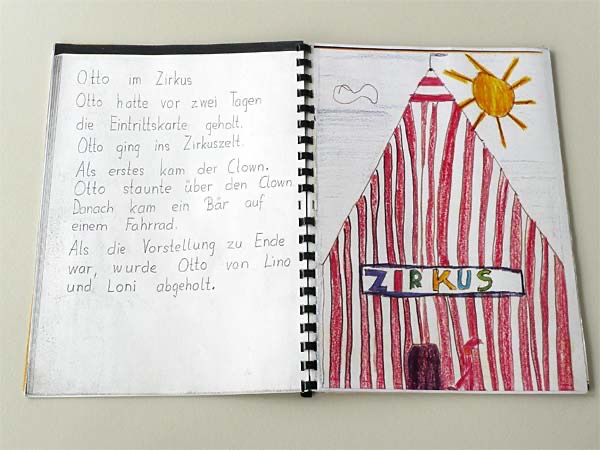 Otto im Zirkus
Otto hatte vor zwei Tagen
die Eintrittskarte geholt.
Otto ging ins Zirkuszelt.
Als erstes kam der Clown.
Otto staunte über den Clown.
Danach kam ein Bär auf
einem Fahrrad.
Als die Vorstellung zu Ende
war, wurde Otto von Lino
und Loni abgeholt.
ZIRKUS